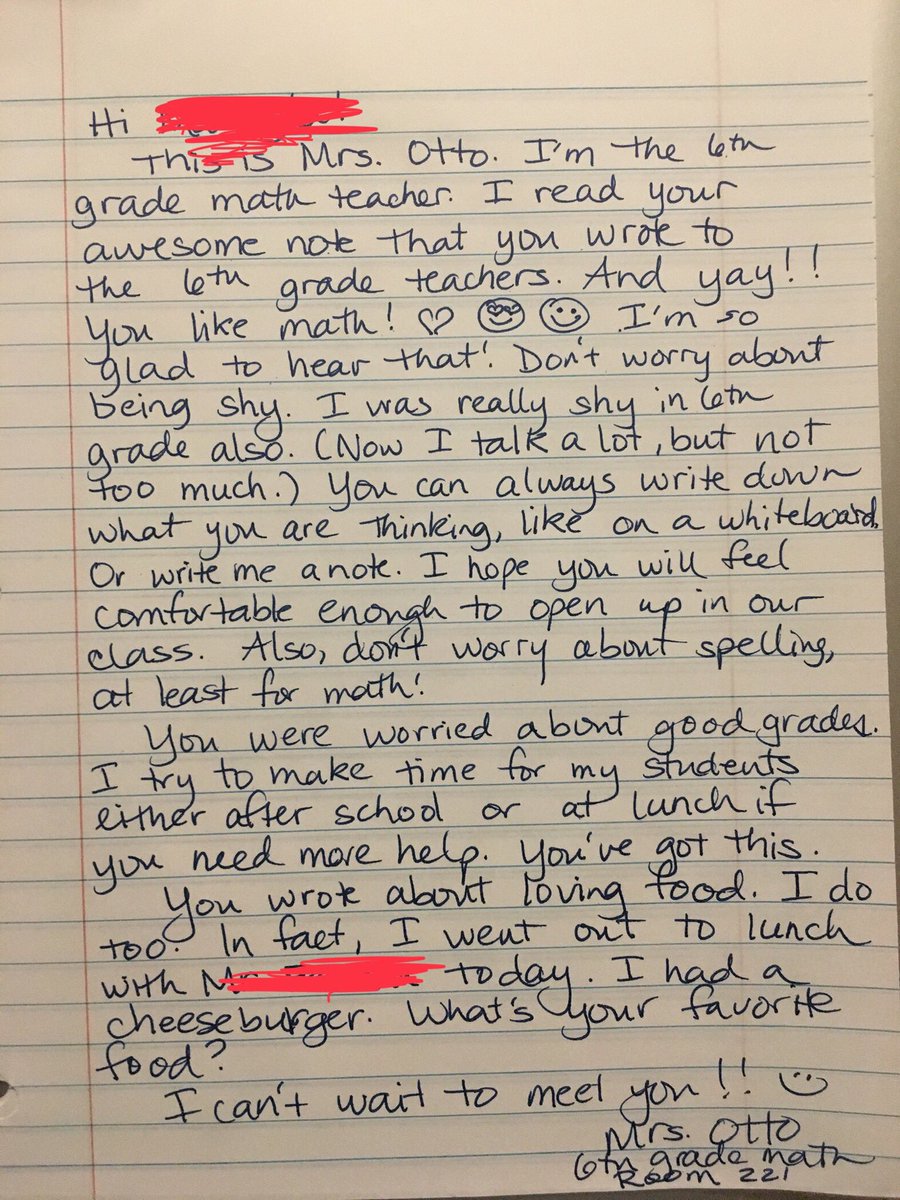 Hi
This is Mrs. Otto. I'm the 6th
grade math teacher. I read your
awesome note that you wrote to
the 6th grade teachers. And yay!!
You like math! ♡ 😍 ☺ I'm so
glad to hear that! Don't worry about
being shy. I was really shy in 6th
grade also. (Now I talk a lot, but not
too much.) You can always write down
what you are thinking, like on a whiteboard.
Or write me a note. I hope you will feel
comfortable enough to open up in our
class. Also, don't worry about spelling,
at least for math!
You were worried about good grades.
I try to make time for my students
either after school or at lunch if
you need more help. You've got this.
You wrote about loving food. I do
too. In fact, I went out to lunch
with today. I had a
cheeseburger. What's your favorite
food?
I can't wait to meet you!! ☺
Mrs. Otto
6th grade math
Room 221